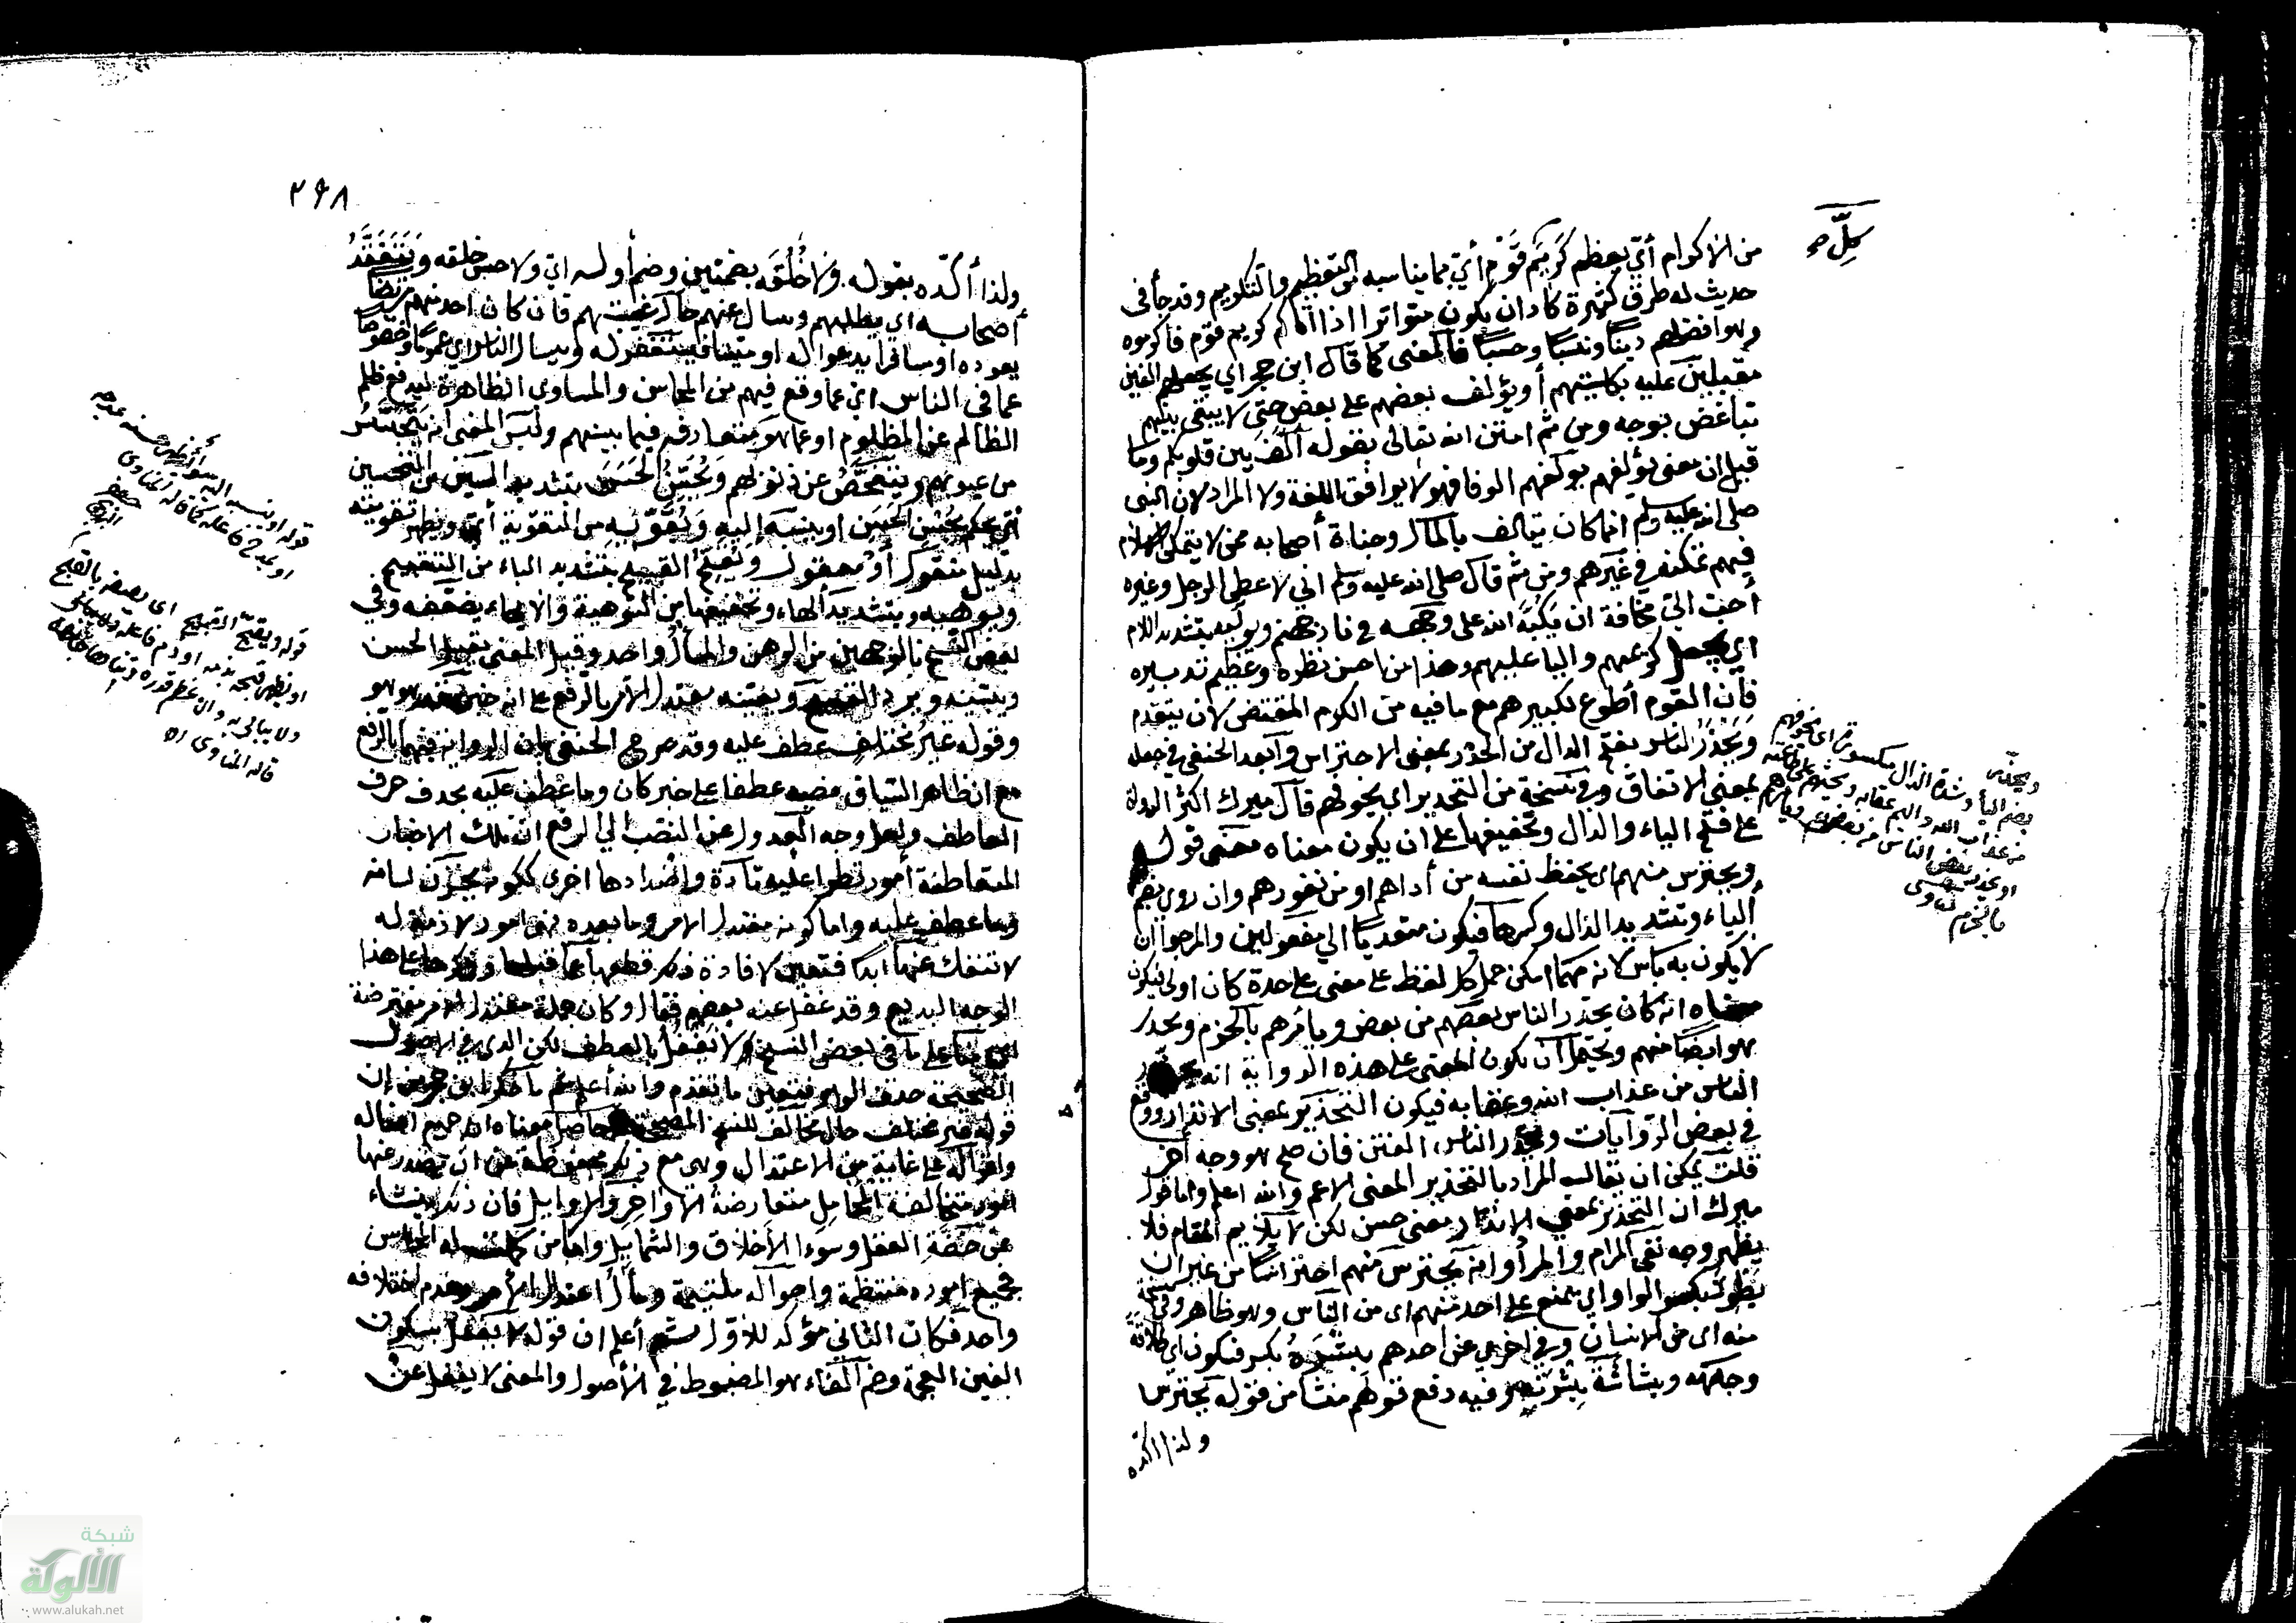 كلّ صح
من الاكرام أي يعظم كَرِيمَ قَوْمٍ أي بما يناسبه من التعظيم والتكريم وقد جأ في
حديث له طرق كثيرة كاد ان يكون متواترا اذا أتاكم كريم قوم فاكرموه
وهو افضلهم دينًا ونسبًا وحسبًا فالمعنى كما قال ابن حجر اي يجعلهم الفين
مقبلين عليه بكليتهم أو يؤلف بعضهم على بعض حتى لا يبقى بينهم
تباغض بوجه ومن ثم امتن الله تعالى بقوله ألف بين قلوبكم وما
قيل ان معنى يؤلفهم يولفهم الوفا فهو لا يوافق اللغة ولا المراد لان النبي
صلى الله عليه وسلم انما كان يتالف بالمال وجفاة أصحابه ممن لا يتمكن الاسلام
فيهم تمكنه في غيرهم ومن ثم قال صلى الله عليه وسلم اني لاعطي الرجل وغيره
أحب الي مخافة ان يكبه الله على وجهه في نار جهنم ويوليه بتشديد اللام
اي يجعل كريمهم واليا عليهم وهذا من احسن نظره وعظيم تدبيره
فان القوم أطوع لكبيرهم مع ما فيه من الكرم المقتضي لان يتقدم
ويحذر الناس بفتح الذال من الحذر بمعنى الاحتراس وأبعد الحنفي في جعله
بمعنى الاتفاق وفي نسخة من التحذير اي يخوفهم قال ميرك اكثر الرواة
على فتح الياء والذال وتخفيفها على ان يكون معناه معنى قوله
ويحترس منهم اي يحفظ نفسه من أذاهم او من نفورهم وان روي بضم
الياء وتشديد الذال وكسرها فيكون متعديا الى مفعولين والمرجو ان
لا يكون به باس لانه مهما امكن حمل كل لفظ على معنى على حدة كان اولى فيكون
معناه انه كان يحذر الناس بعضهم من بعض ويأمرهم بالحزم ويحذر
هو ايضا منهم ويحتمل أن يكون المعنى على هذه الرواية انه يحذر
الناس من عذاب الله وعقابه فيكون التحذير بمعنى الانذار ووقع
في بعض الروايات ويحذر الناس الفتن فان صح هو وجه أخر
قلت يمكن ان يقال المراد بالتحذير المعنى الاعم والله اعلم واما قول
ميرك ان التحذير بمعنى الانذار معنى حسن لكن لا يلايم المقام فلا
يظهر وجه نفي المرام والمراد انه يحترس منهم احتراسًا من غير ان
يطوي بكسر الواو اي يمنع على احد منهم اي من الناس وهو ظاهر وفي نسخة
منه اي من الانسان وفي اخرى عن احدهم بِشْرَهُ بكسر فسكون اي طلاقة
وجهه وبشاشة بشرته وفيه دفع توهم منشا من قوله يحترس
ولذا اكده
ويحذر
بضم اليا وشدة الذال مكسورة اي يخوفهم
من عذاب الله واليم عقابه ويحثهم على طاعته
او يحذر بعض الناس من بعض ويأمرهم
بالحزم مناوى
٢٦٨
ولذا أكّده بقوله ولا خُلُقَه بضمتين وضم أوله اي ولا حسن خلقه وَيَتَفَقَّدُ
أصحابه اي يطلبهم ويسال عنهم حال غيبتهم فان كان احد منهم مريضا
يعوده او مسافرا يدعو له او ميتا فيستغفر له ويسال الناس اي عموما وخصوصا
عما في الناس اي عما وقع فيهم من المحاسن والمساوي الظاهرة ليدفع ظلم
الظالم عن المظلوم او عما هو متعارف فيما بينهم وليس المعنى انه يتجسس
من عيوبهم ويتفحص عن ذنوبهم ويُحَسِّنُ الحَسَنَ بتشديد السين من التحسين
أي يحكم بحسن الحسن او ينسبه إليه ويُقَوِّيهِ من التقوية أي ويظهر تقويته
بدليل منقول أو معقول ويُقَبِّحُ القبيح بتشديد الباء من التقبيح
ويوهيه بتشديد الهاء وتخفيفها من التوهية والايهاء يضعفه وفي
بعض النسخ بالوجهين من الوهن والمأل واحد وقيل المعنى يقبل الحسن
ويثبته ويرد القبيح ويعيبه معتدل الامر بالرفع على انه خبر مبتدأ هو هو
وقوله غير مختلف عطف عليه وقد صرح الحنفي بان الرواية فيهما بالرفع
مع ان ظاهر السياق نصبه عطفا على خبر كان وما عطف عليه بحذف حرف
العاطف ولعل وجه العدول عن النصب الى الرفع ان تلك الاخبار
المتعاطفة أمور تطرا عليه تارة واضدادها اخرى ككونه يخزن لسانه
وما عطف عليه واما كونه معتدل الامر وما بعده فهي امور لازمة له
لا تنفك عنها ابدًا فتعين لافادة ذلك قطعها عما قبلها وذكرها على هذا
الوجه البديع وقد غفل عنه بعضهم فقال وكان جملة معتدل الامر معترضة
على ما في بعض النسخ ولا يغفل بالعطف لكن الذي في الاصول
الصحيحة حذف الواو فيتعين ما تقدم والله أعلم ثم ما ذكر ابن حجر من ان
قوله غير مختلف حال مخالف للنسخ المصححة وحاصل معناه ان جميع افعاله
واقواله على غاية من الاعتدال وهي مع ذلك محفوظة عن ان يصدر عنها
امور متخالفة المحامل متعارضة الاواخر والاوايل فان ذلك ينشاء
عن خفة العقل وسوء الأخلاق والشمايل واما من كملت له المحاسن
فجميع اموره منتظمة واحواله ملتيمة ومأل اعتدال الأمر وعدم اختلافه
واحد فكان الثاني مؤكد للأول ثم أعلم ان قوله لا يغفل بسكون
الغين المعجمة وضم الفاء هو المضبوط في الأصول والمعنى لا يغفل عن
قوله او ينسبه اليه يظهر حسنه
او يمدح فاعله كما قاله المناوى
قوله ويقبح القبيح اى يصفه بالقبح
او يظهر قبحه بذمه او ذم فاعله
ولا يبالى به وان عظم قدره
قاله المناوى اه
شبكة
الألوكة
www.alukah.net